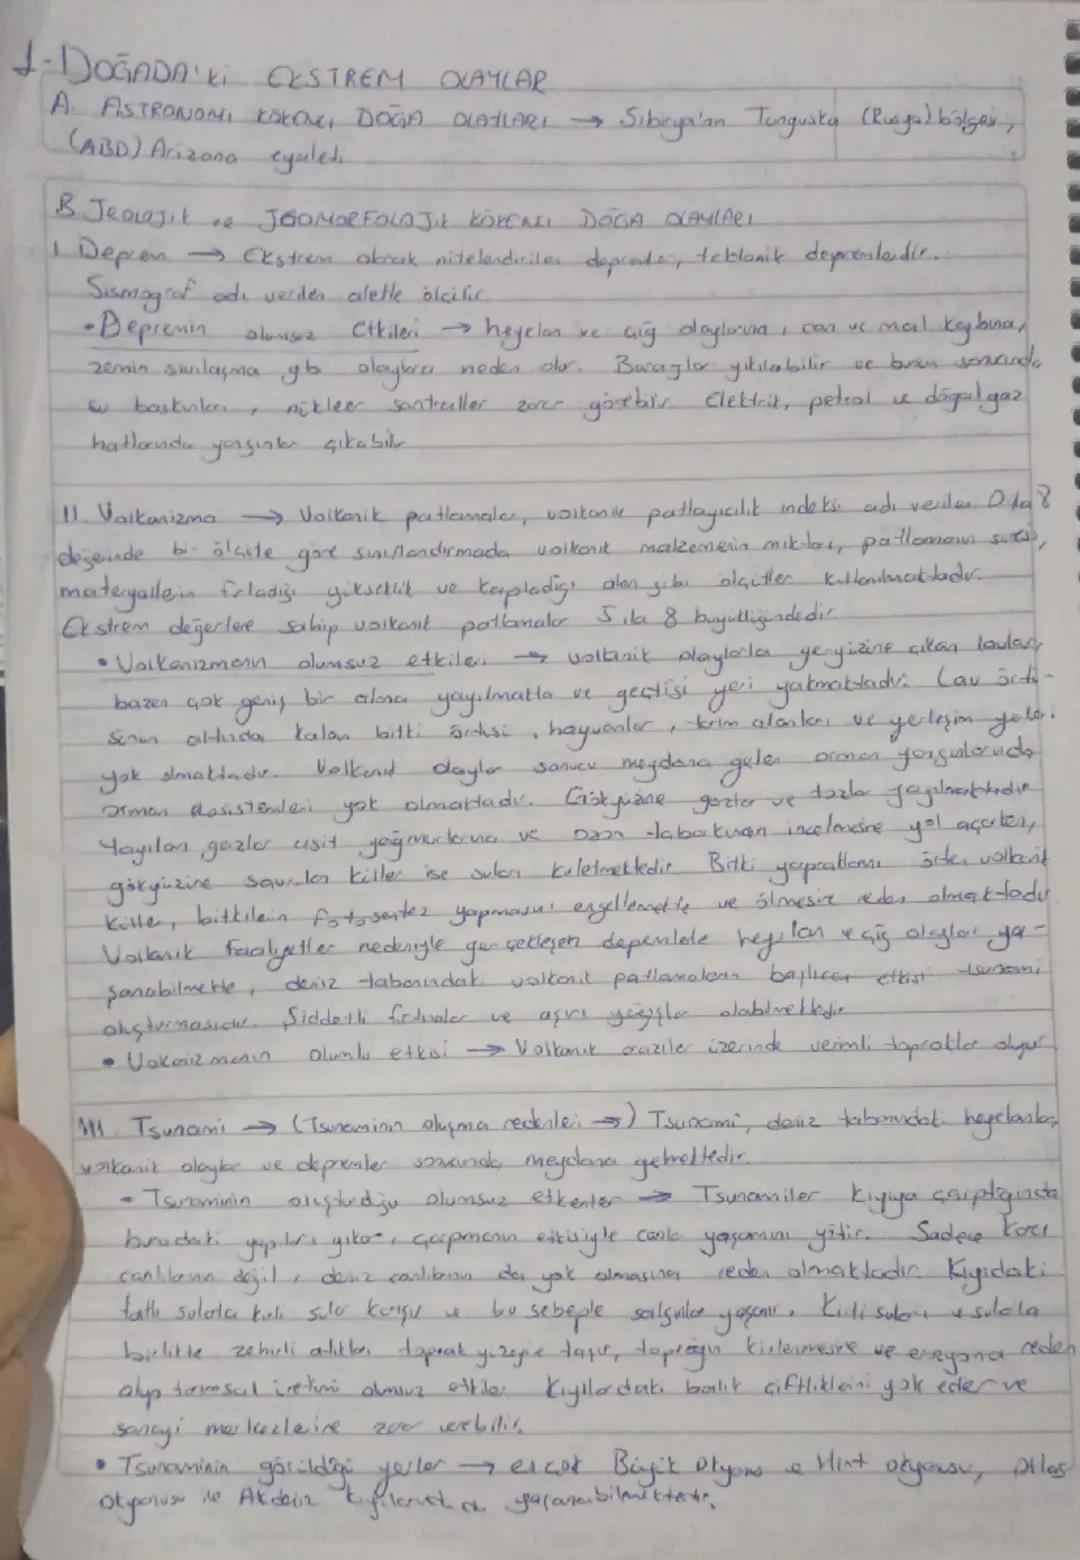 1-DOĞADA'Kİ EKSTREM OLAYLAR
A. ASTRONOMİ KÖKENLİ DOĞA OLAYLARI → Sibirya'nın Tunguska (Rusya) bölgesi,
(ABD) Arizona eyaleti
B. JEOLOJİK ve JEOMORFOLOJİK KÖKENLİ DOĞA OLAYLARI
I. Deprem → Ekstrem olarak nitelendirilen depremler, tektonik depremlerdir.
Sismograf adı verilen aletle ölçülür
• Depremin olumsuz Etkileri → heyelan ve çığ olaylarına, can ve mal kaybına,
zemin sıvılaşma gb olaylara neden olur. Barajlar yıkılabilir ve bunun sonucunda
su baskınları, nükleer santraller zarar görebilir. Elektrik, petrol ve doğal gaz
hatlarında yangınlar çıkabilir
II. Volkanizma → Volkanik patlamalar, volkanik patlayıcılık indeksi adı verilen 0 ila 8
değerinde bir ölçüte göre sınıflandırmada volkanik malzemenin miktarı, patlamanın süresi,
materyallerin fırladığı yükseklik ve kapladığı alan gibi ölçütler kullanılmaktadır.
Ekstrem değerlere sahip volkanik patlamalar 5 ila 8 büyüklüğündedir.
• Volkanizmanın olumsuz etkileri → volkanik olaylarla yeryüzüne çıkan lavlar,
bazen çok geniş bir alana yayılmakta ve geçtiği yeri yakmaktadır. Lav örtü-
sünün altında kalan bitki örtüsü, hayvanlar, tarım alanları ve yerleşim yeleri
yok olmaktadır. Volkanik olaylar sonucu meydana gelen orman yangınlarında
orman ekosistemleri yok olmaktadır. Gökyüzüne gazlar ve tozlar yayılmaktadır
Yayılan gazlar asit yağmurlarına ve ozon tabakasının incelmesine yol açarken,
gökyüzüne savrulan küller ise suları kirletmektedir. Bitki yapraklarını örten volkanik
küller, bitkilerin fotosentez yapmasını engellemekte ve ölmesine neden olmaktadır
Volkanik faaliyetler nedeniyle gerçekleşen depremlerle heyelan ve çığ olayları ya-
şanabilmekte, deniz tabanındaki volkanik patlamaların başlıca etkisi tsunami
oluşturmasıdır. Şiddetli fırtınalar ve aşırı yağışlar olabilmektedir
• Volkanizmanın Olumlu etkisi → Volkanik araziler üzerinde verimli topraklar oluşur
III. Tsunami → (Tsunaminin oluşma nedenleri →) Tsunami, deniz tabanındaki heyelanlar,
volkanik olaylar ve depremler sonucunda meydana gelmektedir.
• Tsunaminin oluşturduğu olumsuz etkenler → Tsunamiler kıyıya çarptığında
buradaki yapıları yıkar, çarpmanın etkisiyle canlı yaşamını yitirir. Sadece kara
canlılarının değil, deniz canlılarının da yok olmasına neden olmaktadır. Kıyıdaki
tatlı sulara kirli sular karışır ve bu sebeple salgınlar yaşanır. Kirli suları ve sularla
birlikte zehirli atıkları toprak yüzeyine taşır, toprağın kirlenmesine ve erozyona neden
olup tarımsal üretimi olumsuz etkiler. Kıyılardaki balık çiftliklerini yok eder ve
sanayi merkezlerine zarar verebilir.
• Tsunaminin görüldüğü yerler → en çok Büyük Okyanus ve Hint okyanusu, Atlas
Okyanusu ile Akdeniz kıyılarında yaşanabilmektedir.